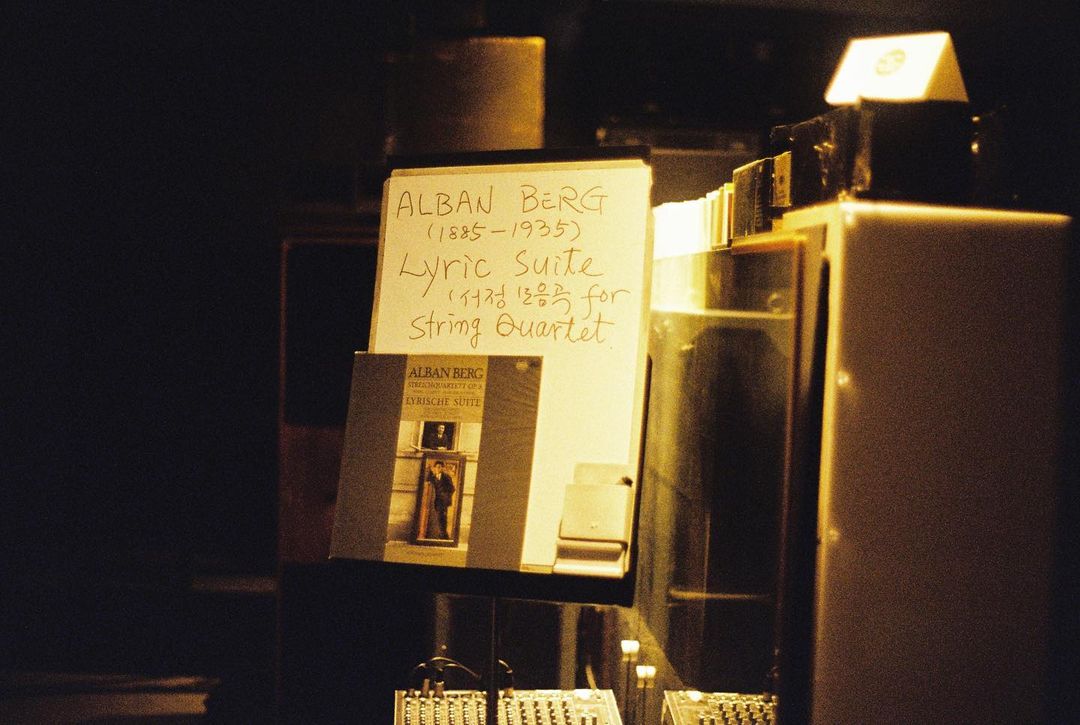 ALBAN BERG
(1885-1935)
Lyric Suite
(서정 모음곡 for
String Quartet
ALBAN BERG
STREICHQUARTETT OP. 3
LYRISCHE SUITE